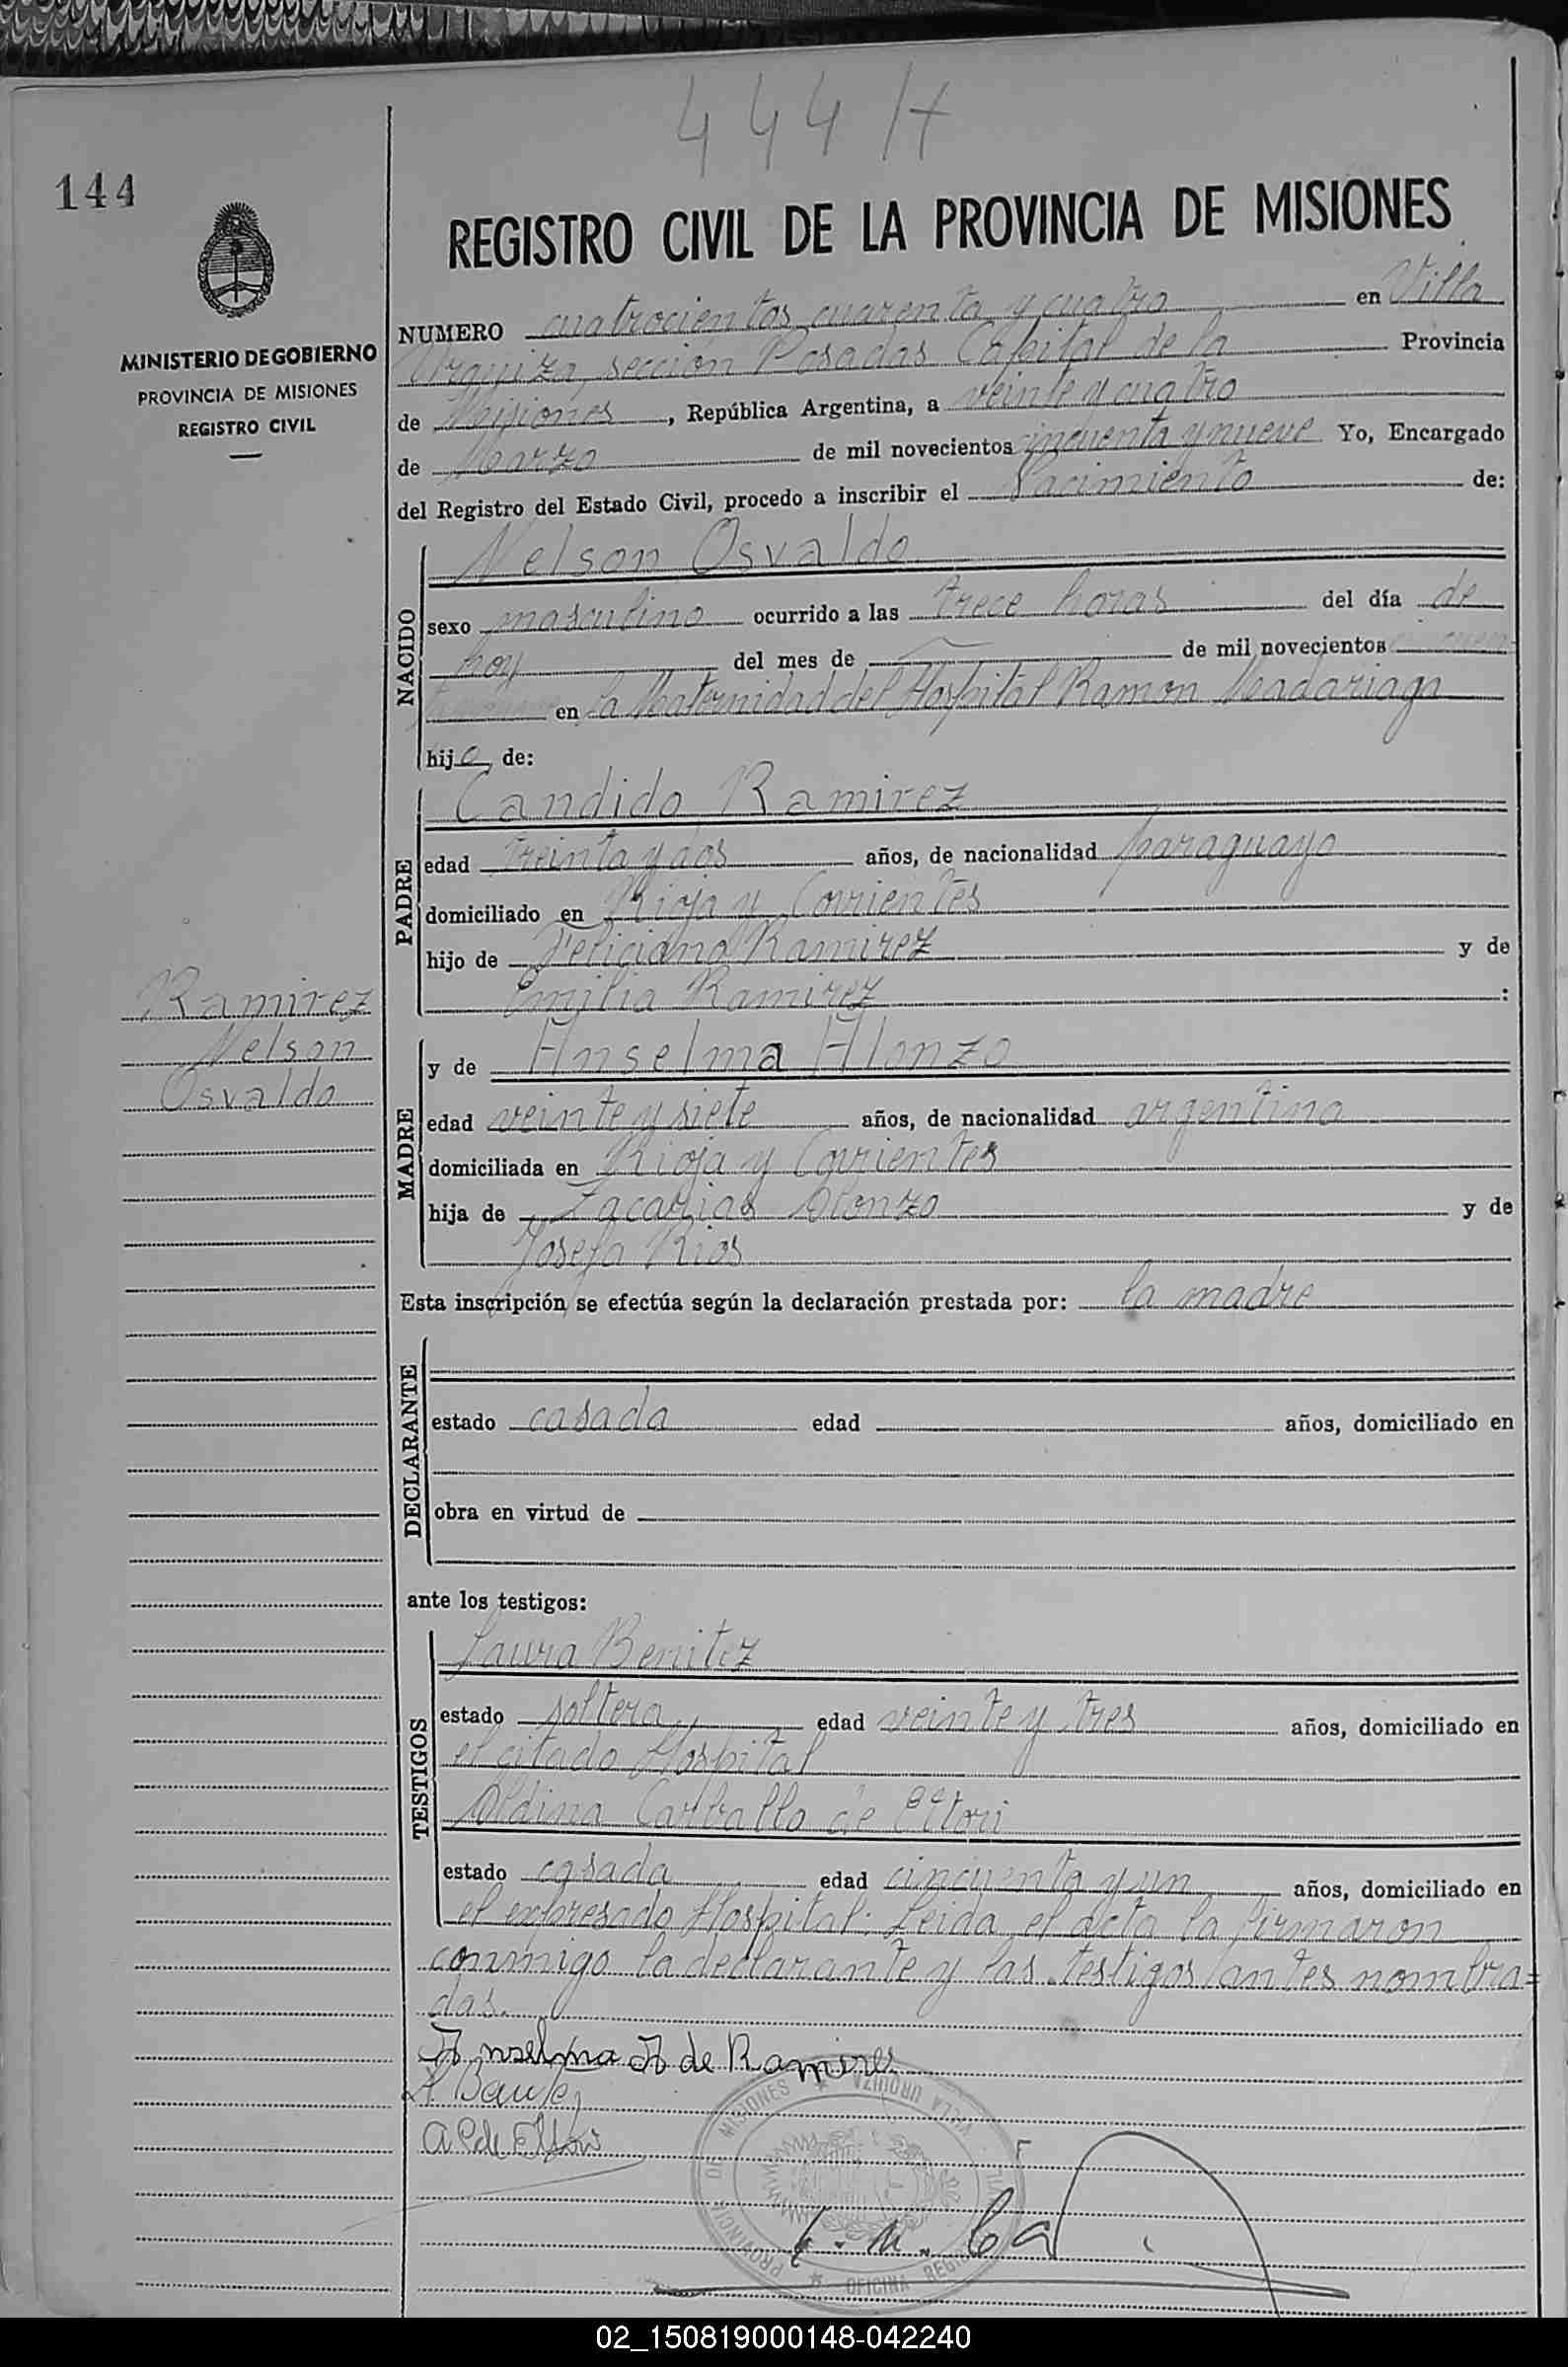 444 H
144
REGISTRO CIVIL DE LA PROVINCIA DE MISIONES
MINISTERIO DE GOBIERNO
PROVINCIA DE MISIONES
REGISTRO CIVIL
NUMERO cuatrocientos cuarenta y cuatro en Villa
Urquiza, sección Posadas Capital de la Provincia
de Misiones, República Argentina, a veinte y cuatro
de Marzo de mil novecientos cincuenta y nueve Yo, Encargado
del Registro del Estado Civil, procedo a inscribir el Nacimiento de:
NACIDO
Nelson Osvaldo
sexo masculino ocurrido a las trece horas del día de
hoy del mes de de mil novecientos
en la Maternidad del Hospital Ramon Madariaga
hijo de:
PADRE
Candido Ramirez
edad treinta y dos años, de nacionalidad paraguayo
domiciliado en Rioja y Corrientes
hijo de Feliciano Ramirez y de
Emilia Ramirez :
Ramirez
Nelson
Osvaldo
MADRE
y de Anselma Alonzo
edad veinte y siete años, de nacionalidad argentina
domiciliada en Rioja y Corrientes
hija de Zacarias Alonzo y de
Josefa Rios
Esta inscripción se efectúa según la declaración prestada por: la madre
DECLARANTE
estado casada edad años, domiciliado en
obra en virtud de
ante los testigos:
TESTIGOS
Laura Benitez
estado soltera edad veinte y tres años, domiciliado en
el citado Hospital
Aldina Carballo de
estado casada edad cincuenta y un años, domiciliado en
el expresado Hospital. Leida el acta la firmaron
conmigo la declarante y las testigos antes nombra=
das.
Anselma A de Ramires
PROVINCIA DE MISIONES VILLA URQUIZA
OFICINA REGI
02_150819000148-042240